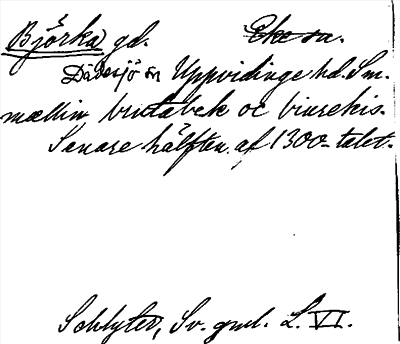 Björka gd. Ekesa.
Dädesjö sn Uppvidinge hd. Sm.
mællin brutabek oc biurekis.
Senare hälften af 1300-talet.
Schlyter, Sv. gml. L. VI.